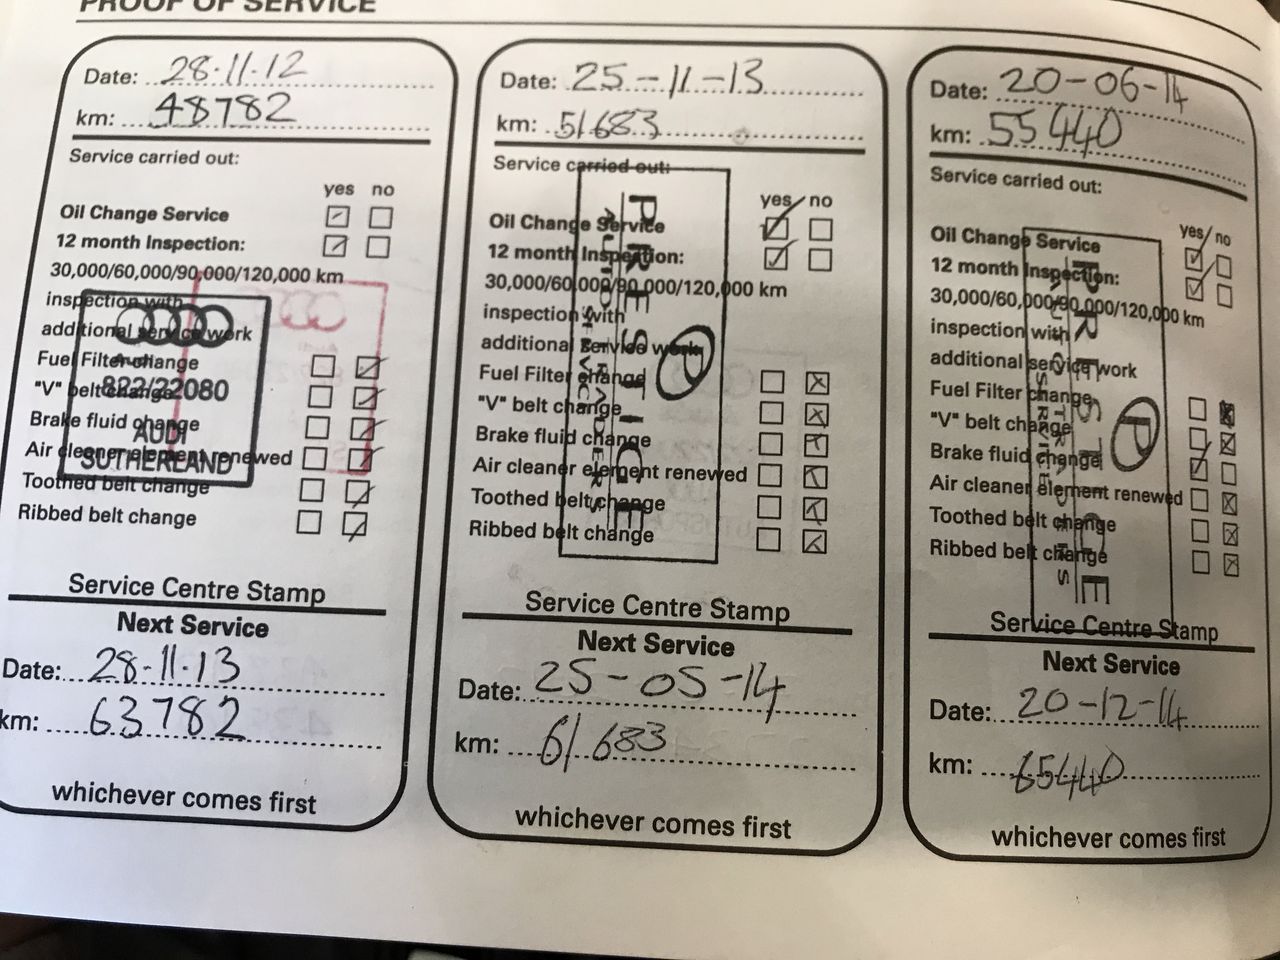 PROOF OF SERVICE
Date: 28-11-12
km: 48782
Service carried out:
yes no
Oil Change Service
12 month Inspection:
30,000/60,000/90,000/120,000 km
inspection with
additional service work
Fuel Filter change
"V" belt change
Brake fluid change
Air cleaner element renewed
Toothed belt change
Ribbed belt change
822/22080
AUDI
SUTHERLAND
Service Centre Stamp
Next Service
Date: 28-11-13
km: 63782
whichever comes first
Date: 25-11-13
km: 51683
Service carried out:
yes no
Oil Change Service
12 month Inspection:
30,000/60,000/90,000/120,000 km
inspection with
additional service work
Fuel Filter change
"V" belt change
Brake fluid change
Air cleaner element renewed
Toothed belt change
Ribbed belt change
PRESTIGE
Service Centre Stamp
Next Service
Date: 25-05-14
km: 61683
whichever comes first
Date: 20-06-14
km: 55440
Service carried out:
yes no
Oil Change Service
12 month Inspection:
30,000/60,000/90,000/120,000 km
inspection with
additional service work
Fuel Filter change
"V" belt change
Brake fluid change
Air cleaner element renewed
Toothed belt change
Ribbed belt change
PRESTIGE
Service Centre Stamp
Next Service
Date: 20-12-14
km: 65440
whichever comes first